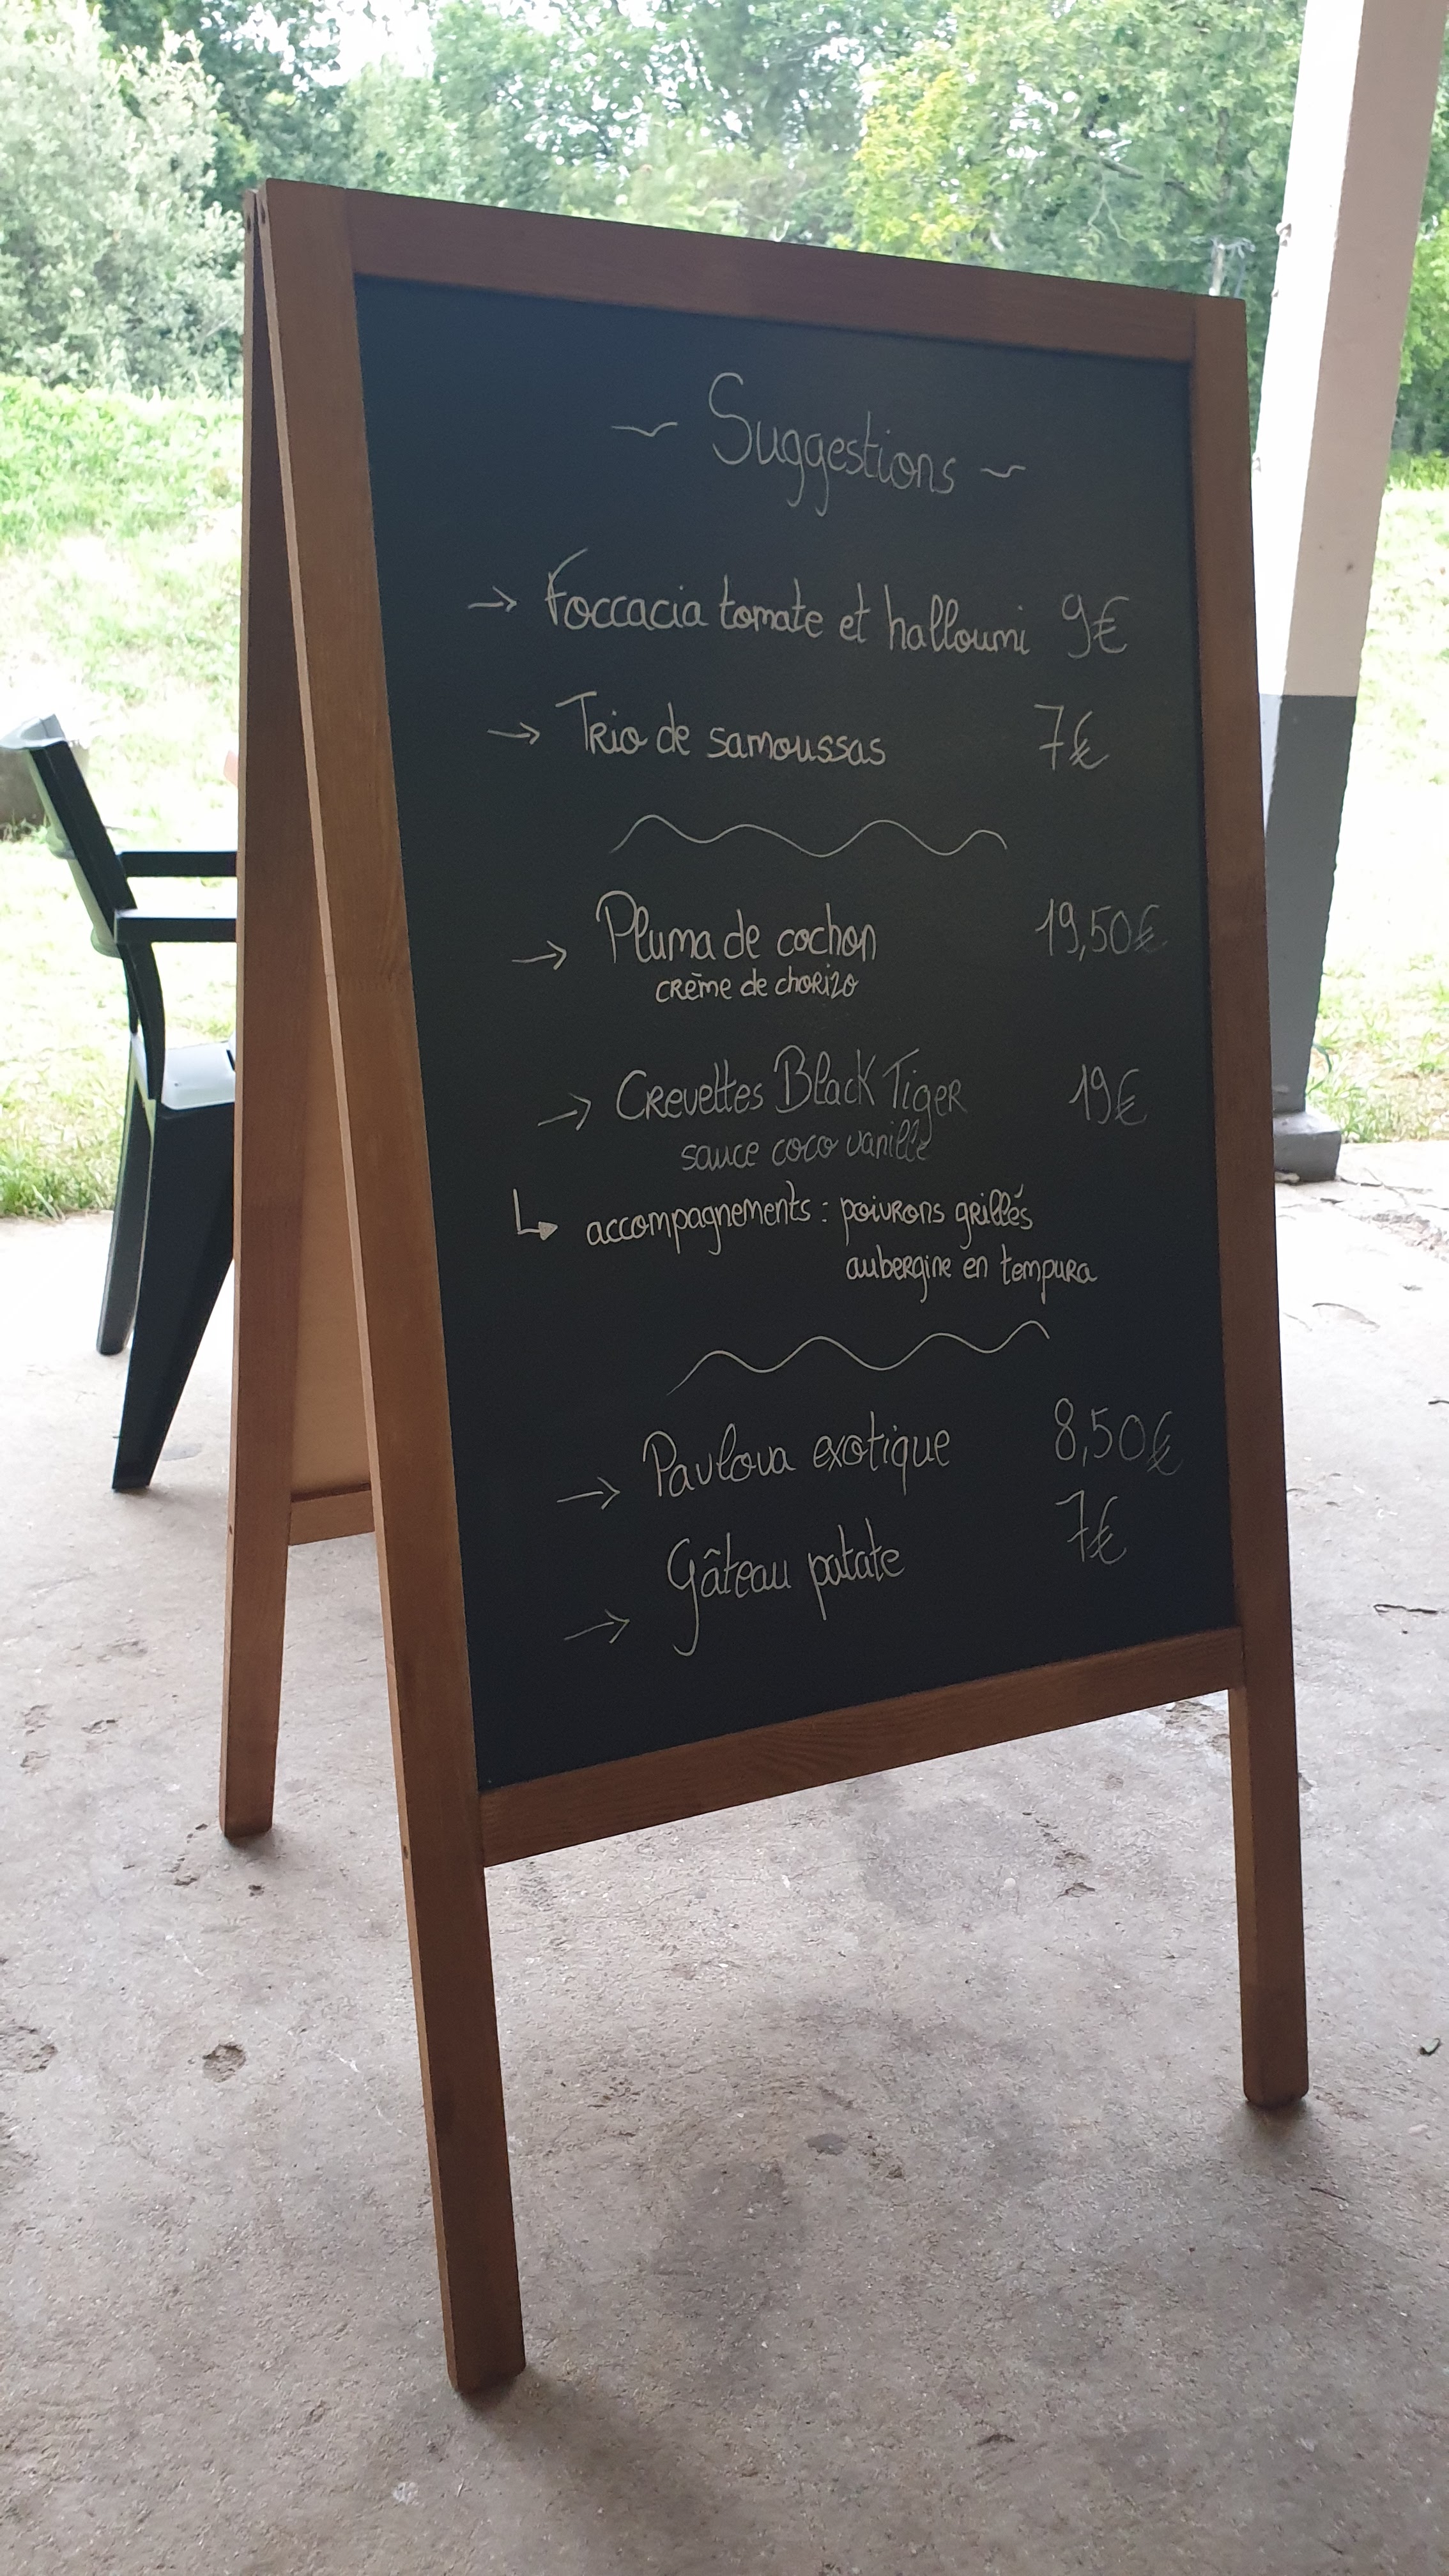 ~ Suggestions ~
→ Foccacia tomate et halloumi 9€
→ Trio de samoussas 7€
→ Pluma de cochon 19,50€
crème de chorizo
→ Crevettes Black Tiger 19€
sauce coco vanille
↳ accompagnements : poivrons grillés
aubergine en tempura
→ Pavlova exotique 8,50€
→ Gâteau patate 7€